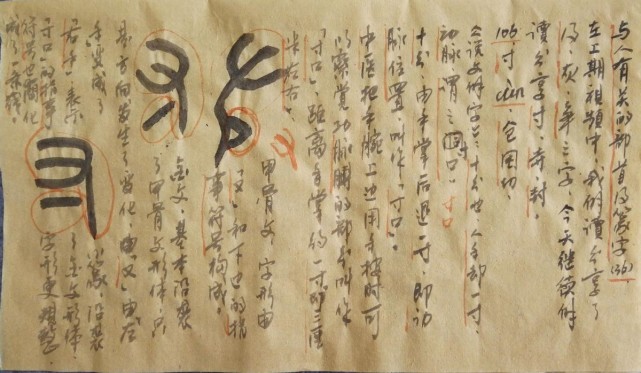 与人有关的部首及篆字(36)
在上期视频中,我们读分享了
又、灰、第三字 今天继续解
读分享寸、寺、封。
106 寸 cùn,仓困切。
《说文解字》云:十分也。人手却一寸,
动脉谓之寸口。
十分。由手掌后退一寸,即动
脉位置,叫作"寸口"。
中医把手腕上边用手按时可
以察觉动脉跳的部分叫作
"寸口",距离手掌约一寸
左右。
甲骨文,字形由
"又"和下边的指
事符号构成。
金文,基本沿袭
了甲骨文形体,只
是方向发生了变化,由"又"由左
手变成了
"右手"表示
"寸口"的指事
符号也简化
小篆,沿袭
了金文形体,
字形更规整